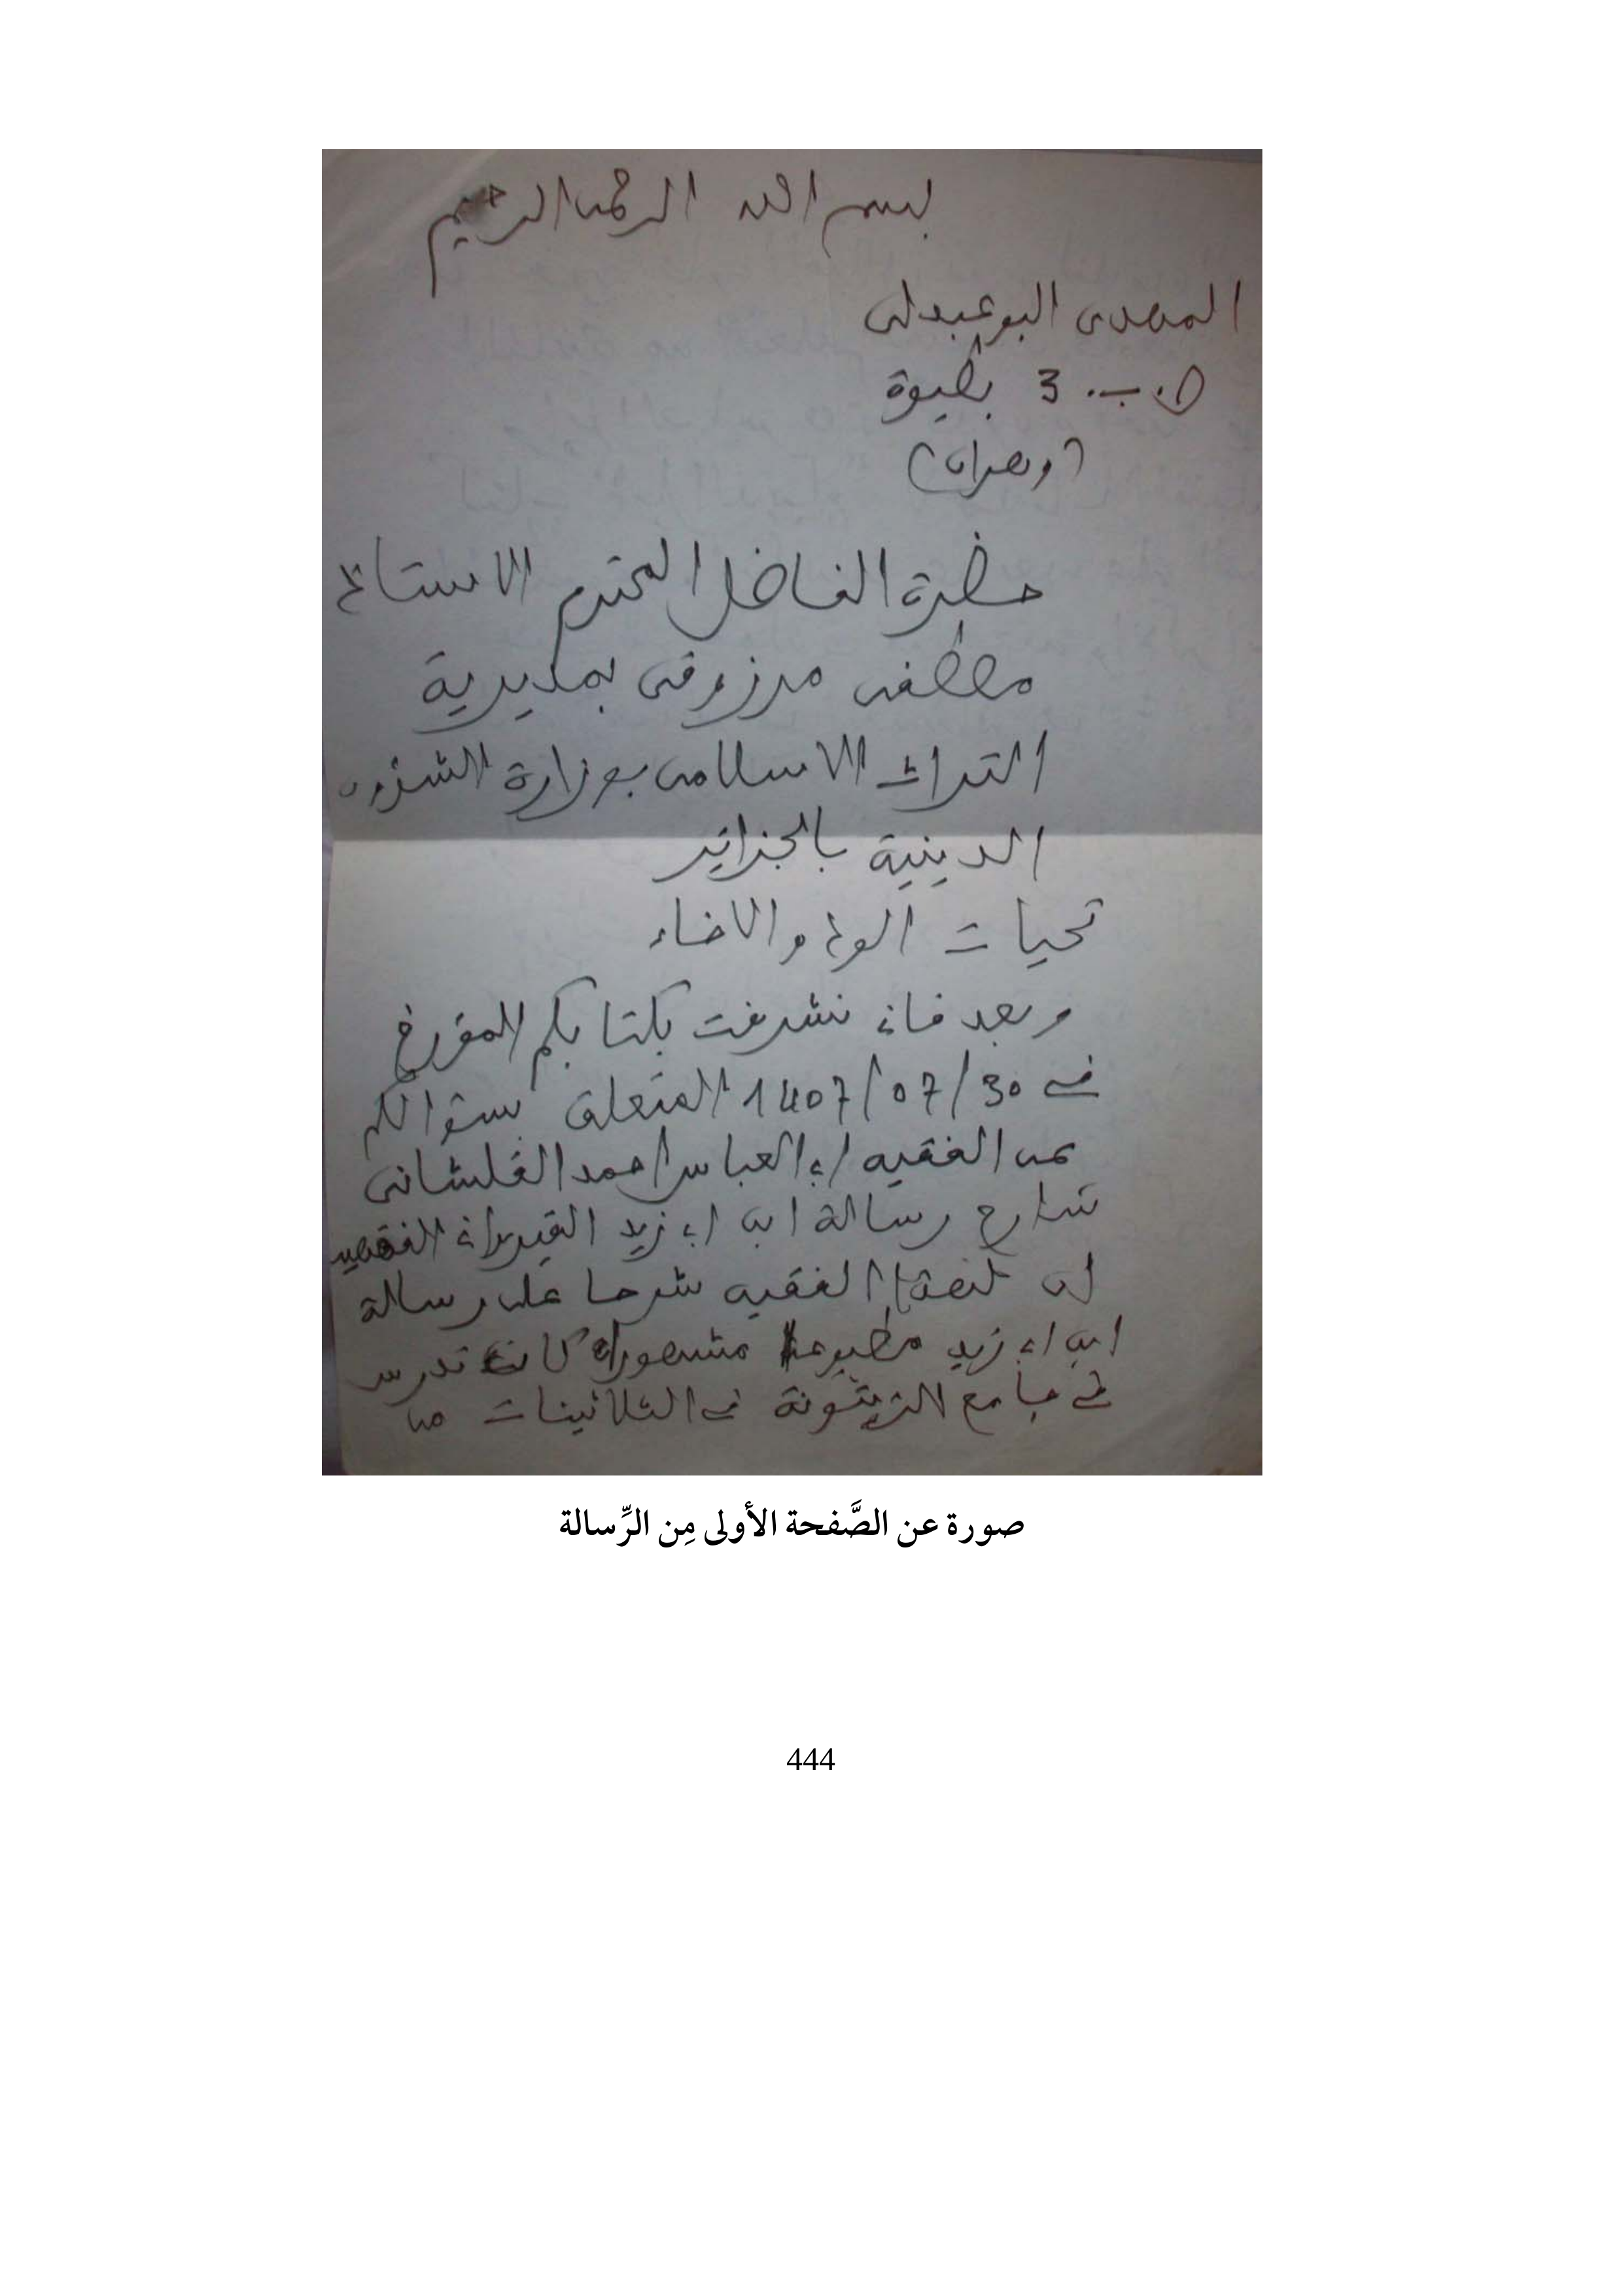 بسم الله الرحمن الرحيم
المهدي البوعبدلي
ص.ب. 3 بطيوة
(وهران)
حضرة الفاضل المحترم الاستاذ
مصطفى مرزوقي بمديرية
التراث الاسلامي بوزارة الشؤون
الدينية بالجزائر
تحيات الود والاخاء
وبعد فاني تشرفت بكتابكم المؤرخ
في 30/07/1407 المتعلق بسؤالكم
عن الفقيه ابي العباس احمد القلشاني
شارح رسالة ابن ابي زيد القيرواني الفقهية
ان لهذا الفقيه شرحا على رسالة
ابن ابي زيد مطبوعا مشهورا كانت تدرس
في جامع الزيتونة في الثلاثينات من
صورة عن الصَّفحة الأولى مِن الرِّسالة
444